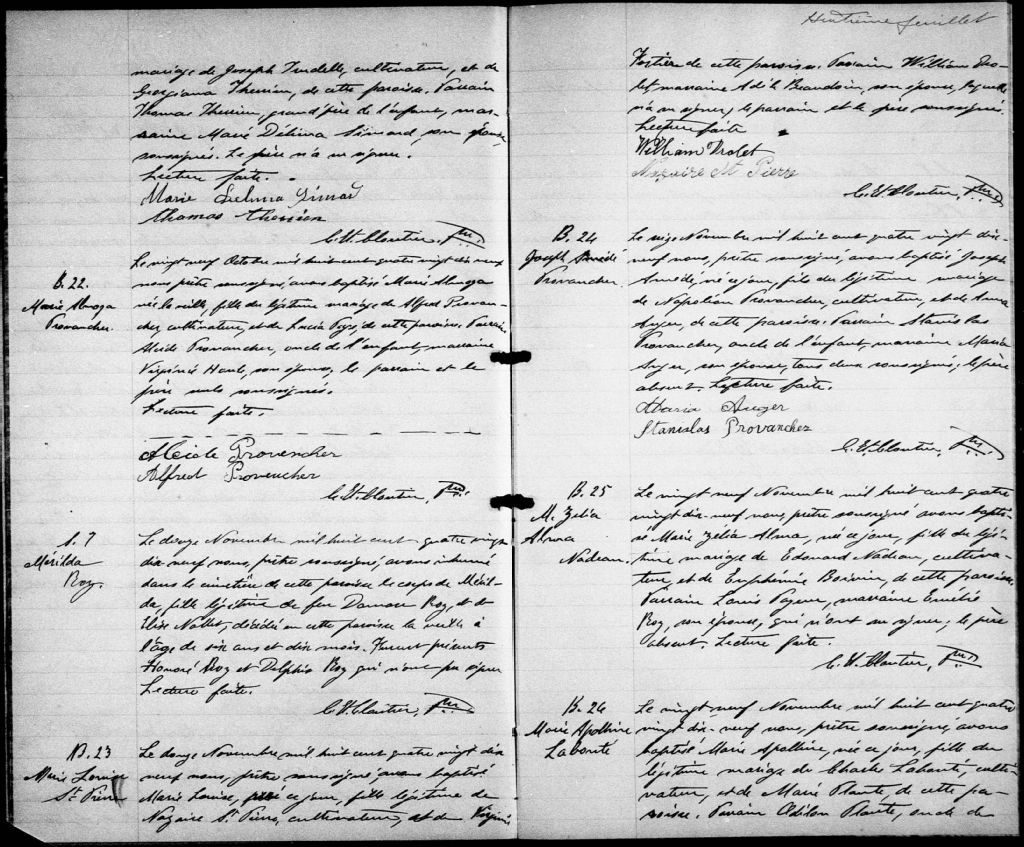 mariage de Joseph Trudelle, cultivateur, et de
Georgiana Therrien, de cette paroisse. Parrain
Thomas Therrien, grand'père de l'enfant, mar-
raine Marie Délima Simard, son épouse,
soussignés. Le père n'a su signer.
Lecture faite.
Marie Delima Simard
thomas therrien
C. H. Cloutier, Ptre.
B. 22.
Marie Almoza
Provancher.
Le vingt neuf Octobre mil huit cent quatre vingt dix neuf
nous prêtre soussigné, avons baptisé Marie Almoza
née la veille, fille du légitime mariage de Alfred Provan-
cher, cultivateur, et de Lucie de cette paroisse. Parrain
Alcide Provancher, oncle de l'enfant, marraine
Virginie Houle, son épouse, le parrain et le
père seuls soussignés.
Lecture faite.
Alcide Provencher
Alfred Provencher
C. H. Cloutier, Ptre.
S. 7
Mérilda
Roy.
Le douze Novembre mil huit cent quatre vingt
dix neuf nous, prêtre soussigné, avons inhumé
dans le cimetière de cette paroisse le corps de Méril-
da, fille légitime de feu Damase Roy, et de
Elise Nollet, décédée en cette paroisse la veille à
l'âge de six ans et dix mois. Furent présents
Honoré Roy et Delphis Roy qui n'ont pu signer
Lecture faite.
C. H. Cloutier, Ptre.
B. 23
Marie Louise
St. Pierre
Le douze Novembre mil huit cent quatre vingt dix
neuf nous, prêtre soussigné avons baptisé
Marie Louise, née ce jour, fille légitime de
Nazaire St. Pierre, cultivateur, et de Virginie
Huitième feuillet
Fortier de cette paroisse. Parrain William Dro-
let, marraine Adèle Beaudoin, son épouse, laquelle
n'a su signer, le parrain et le père soussignés.
Lecture faite
William Drolet
Nazaire St Pierre
C. H. Cloutier, Ptre.
B. 24
Joseph Amédé
Provancher.
Le seize Novembre mil huit cent quatre vingt dix-
neuf nous, prêtre soussigné, avons baptisé Joseph
Amédé, né ce jour, fils du légitime mariage
de Napoléon Provancher, cultivateur, et de Anna
Auger, de cette paroisse. Parrain Stanislas
Provancher, oncle de l'enfant, marraine Maria
Auger, son épouse, tous deux soussignés; le père
absent. Lecture faite.
Maria Auger
Stanislas Provancher
C. H. Cloutier, Ptre.
B. 25
M. Zélia
Alma
Nadeau.
Le vingt neuf Novembre mil huit cent quatre
vingt dix-neuf nous, prêtre soussigné avons bapti-
sé Marie Zélia Alma, née ce jour, fille du légi-
time mariage de Edouard Nadeau, cultiva-
teur, et de Euphémie Boisvin, de cette paroisse.
Parrain Louis marraine Emélie
Roy, son épouse, qui n'ont su signer; le père
absent. Lecture faite.
C. H. Cloutier, Ptre.
B. 26
Marie Apolline
Labonté
Le vingt-neuf Novembre mil huit cent quatre
vingt dix-neuf nous, prêtre soussigné, avons
baptisé Marie Apolline, née ce jour, fille du
légitime mariage de Charles Labonté, culti-
vateur, et de Marie Plante, de cette pa-
roisse. Parrain Odilon Plante, oncle de